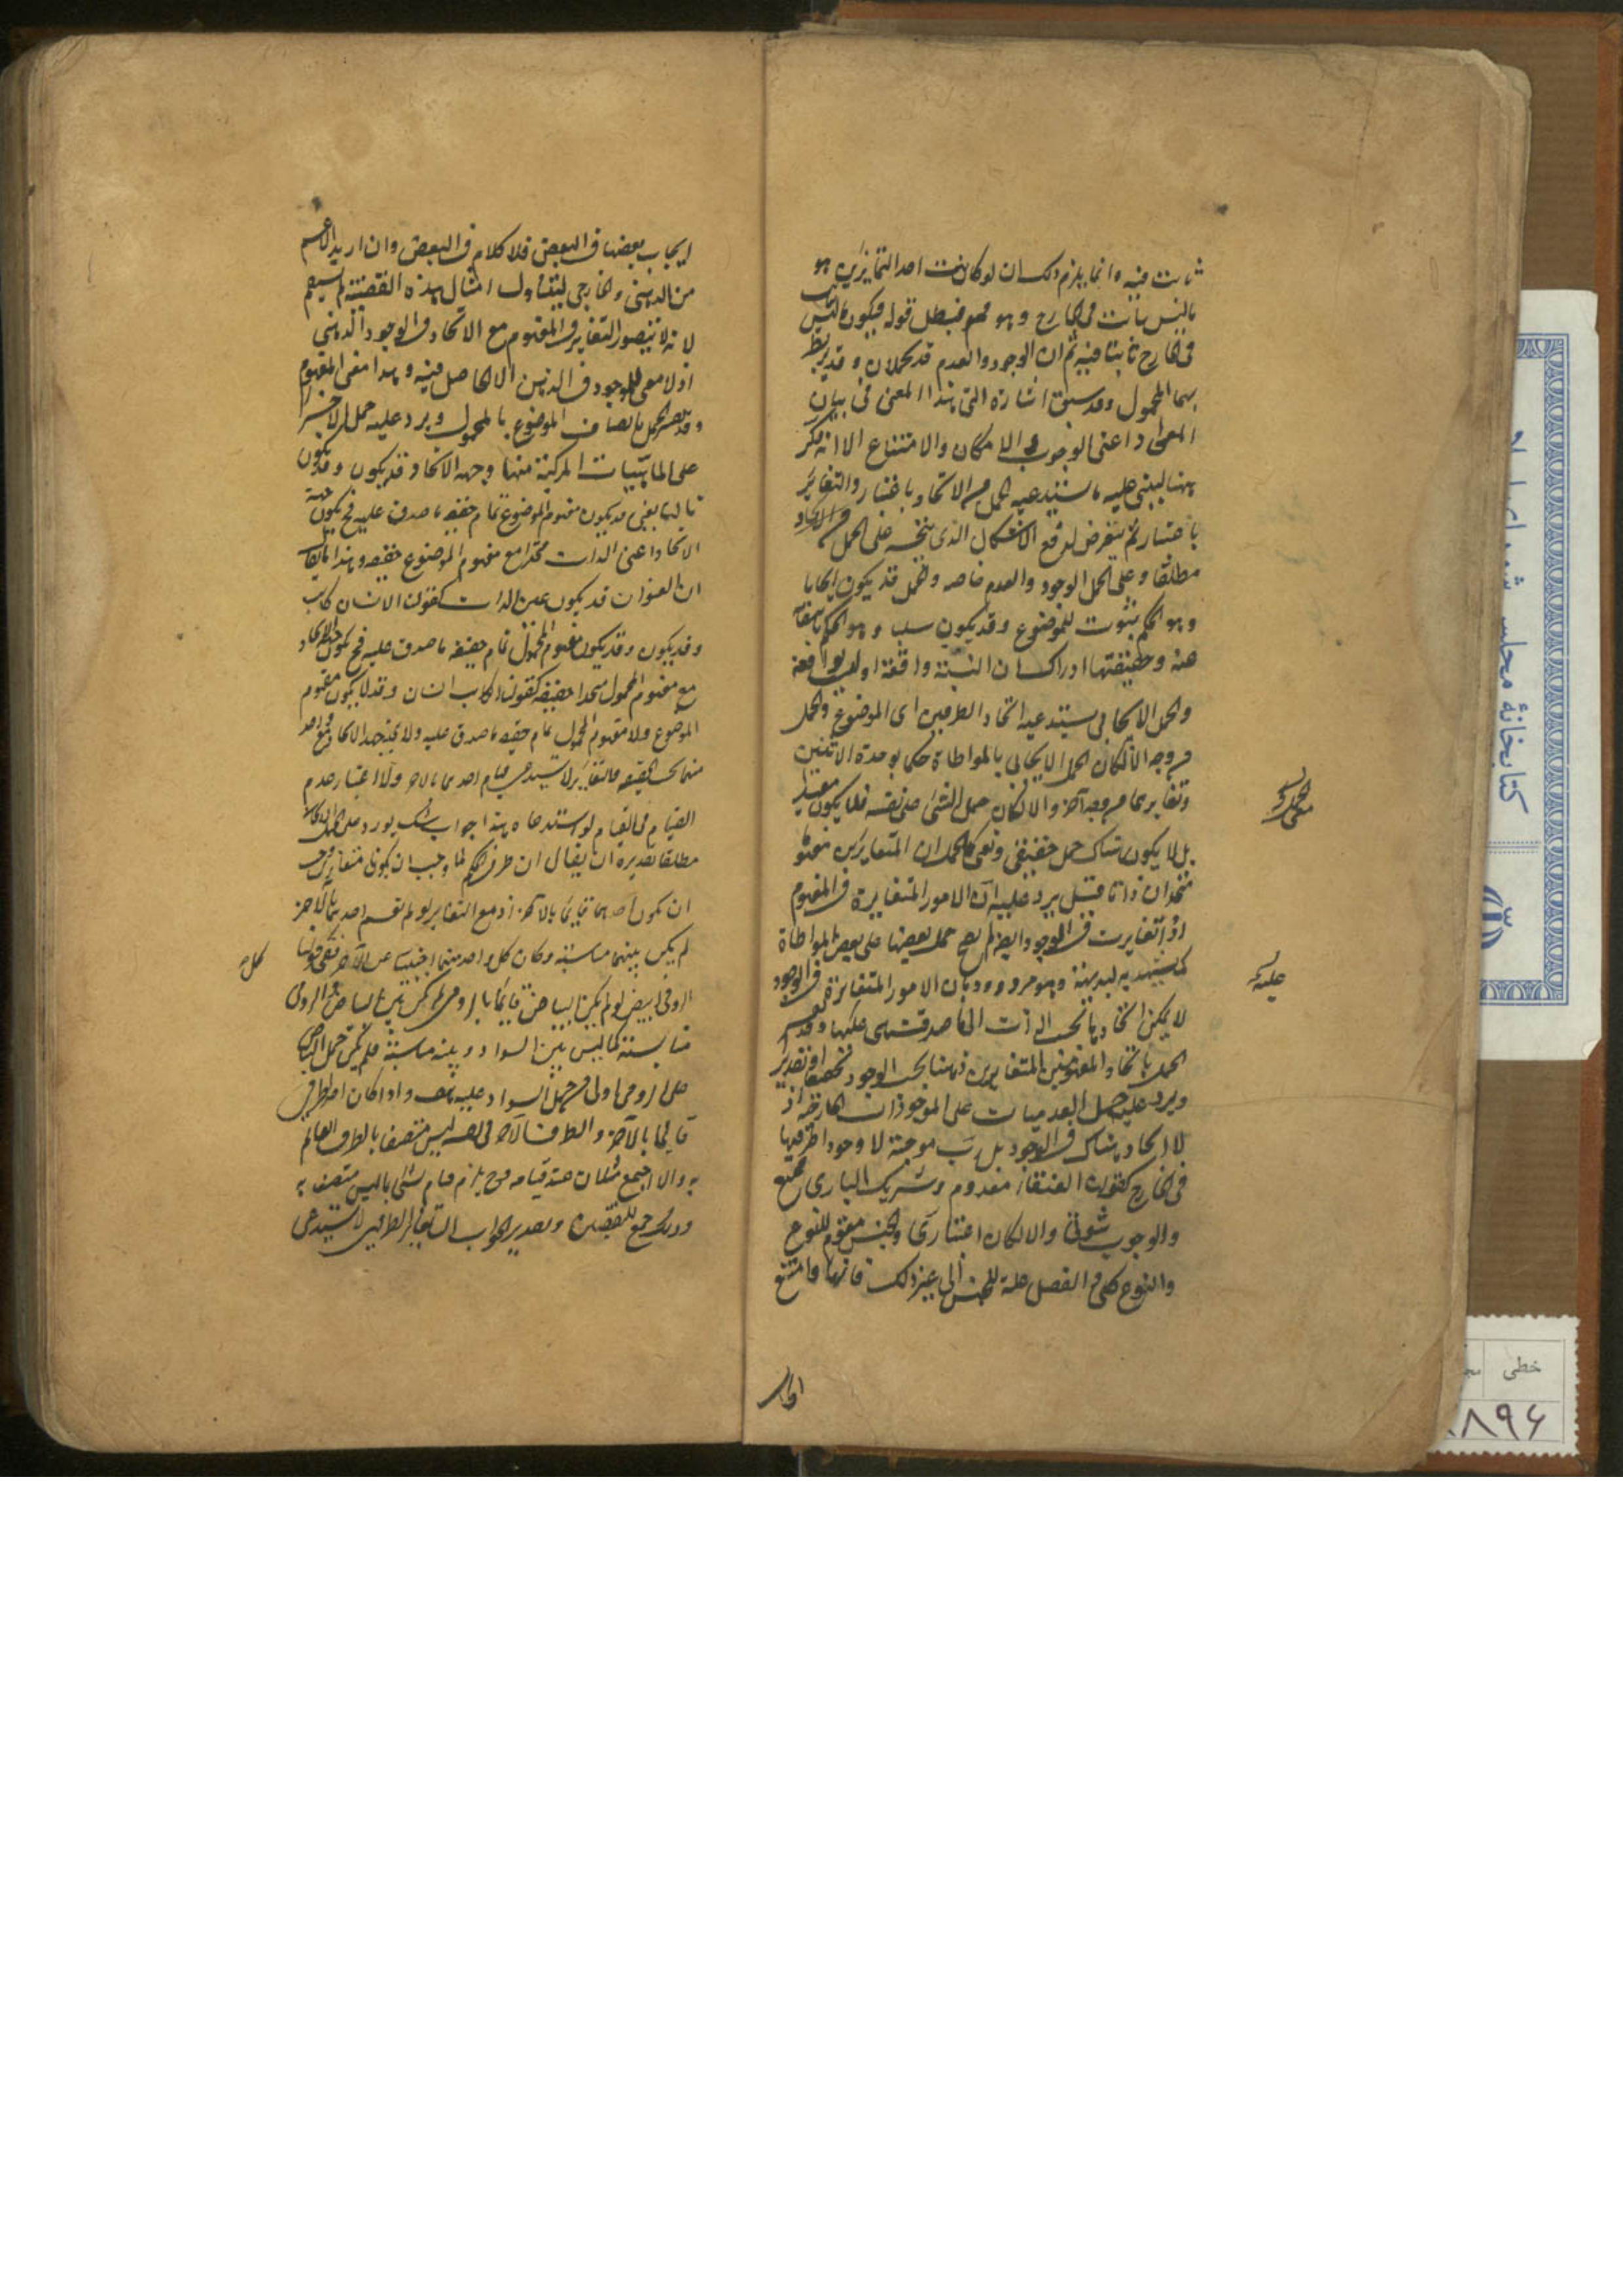 ثابت فيه وانما يلزم ذلك ان لو كانت احد المتمايزين هو
ما ليس ثابت فى الخارج وهو مم فبطل قوله فيكون ما ليس
فى الخارج ثابتا فيه ثم ان الوجود والعدم قد يحملان وقد يربط
بهما المحمول وقد سبق اشارة الى هذا المعنى فى بيان
المواد اعنى الوجوب والامكان والامتناع الا انه ذكر
ههنا ليبنى عليه ما يستدعيه الحمل من الاتحاد باعتبار والتغاير
باعتبار ثم يتعرض لدفع الاشكال الذى يتجه على الحمل
مطلقا وعلى حمل الوجود والعدم خاصه والحمل قد يكون ايجابا
وهو الحكم بثبوت للموضوع وقد يكون سلبا وهو الحكم بانتفائه
عنه وحقيقتها ادراك ان النسبة واقعة او ليست بواقعة
والحمل الايجابى يستدعى اتحاد الطرفين اى الموضوع والمحمول
من وجه اذ لكان الحمل الايجابى بالمواطاة حكما بوحدة الاثنين
وتغايرهما من وجه آخر والا لكان حمل الشئ على نفسه فلا يكون مفيدا
بل لا يكون هناك حمل حقيقى ومعنى الحمل ان المتغايرين مفهوما
متحدان ذاتا قيل يرد عليه ان الامور المتغايرة فى المفهوم
اذا تغايرت فى الوجود ايضا لم يصح حمل بعضها على بعض بالمواطاة
كما يشهد به البديهة وهو مردود بان الامور المتغايرة فى الوجود
لا يمكن اتحادها بحسب الذات اى ما صدقت هى عليها وقد يفسر
الحمل باتحاد المفهومين المتغايرين ذهنا بحسب الوجود تحقيقا او تقديرا
ويرد عليه حمل العدميات على الموجودات الخارجية اذ
لا اتحاد هناك فى الوجود بل رب موجبة لا وجود لطرفيها
فى الخارج كقولك العنقاء معدوم وشريك البارى ممتنع
والوجوب ثبوتى والامكان اعتبارى والجنس مقوم للنوع
والنوع كلى والفصل علة للجنس الى غير ذلك فانها وامتنع
عليه
ايجاب بعضها فى البعض فلا كلام فى البعض وان اريد الاعم
من الذهنى والخارجى ليتناول امثال هذه القضية لم يستقم
لانه لا يتصور التغاير فى المفهوم مع الاتحاد فى الوجود الذهنى
اذ لا معنى للوجود فى الذهن الا الحاصل فيه وهذا معنى المفهوم
وقد يفسر الحمل باتصاف الموضوع بالمحمول ويرد عليه حمل الاجزاء
على الماهيات المركبة منها وجهة الاتحاد قد يكون وقد يكون
ثالثا يعنى قد يكون مفهوم الموضوع تمام حقيقة ما صدق عليه فح يكون جهة
الاتحاد اعنى الذات متحدا مع مفهوم الموضوع حقيقة وهذا ما يقال
ان العنوان قد يكون عين الذات كقولنا الانسان كاتب
وقد يكون وقد يكون مفهوم المحمول تمام حقيقة ما صدق عليه فح يكون جهة الاتحاد
مع مفهوم المحمول متحدا حقيقة كقولنا الكاتب انسان وقد لا يكون مفهوم
الموضوع ولا مفهوم المحمول تمام حقيقة ما صدق عليه ولا يتحد جهة الاتحاد مع واحد
منهما بحسب الحقيقة فالتغاير لا يستدعى قيام احدهما بالاخر ولا اعتبار عدم
القيام فى القيام لو استدعاه هذا جواب شك يورد على الحمل الايجابى
مطلقا تقديره ان يقال ان طرفى الحكم لما وجب ان يكونا متغايرين وجب
ان يكون احدهما قائما بالآخر اذ مع التغاير لو لم يقم احدهما بالآخر
لم يكن بينهما مناسبة وكان كل واحد منهما اجنبيا عن الآخر ففى قولنا
الرومى ابيض لو لم يكن البياض قائما بالرومى لم يكن بين البياض والرومى
مناسبة كما ليس بين السواد وبينه مناسبة فلم يكن حمل البياض
على الرومى اولى من حمل السواد عليه هف واذا كان احد الطرفين
قائما بالآخر والطرف الآخر فى نفسه ليس متصفا بالطرف القائم
به والا اجتمع مثلان عند قيامه فح يلزم قيام شئ بما ليس متصف به
وذلك جمع للنقيضين وتقدير الجواب ان تغاير الطرفين لا يستدعى
كتابخانهٔ مجلس شورای
خطی
۸۹۶